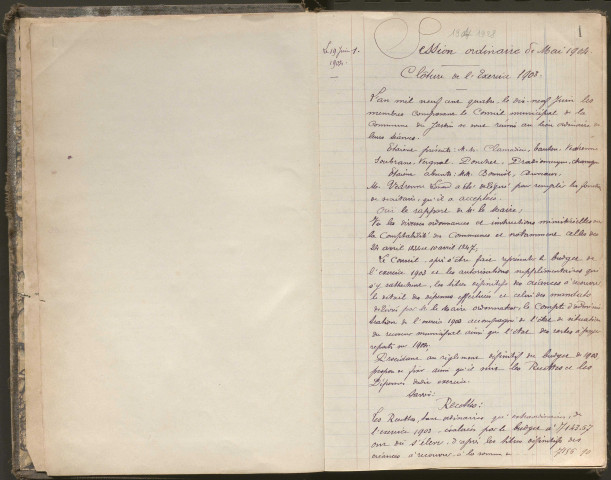 1904 1908
1
Session ordinaire de Mai 1904.
Le 19 Juin
1904.
Clôture de l'Exercice 1903.
L'an mil neuf cent quatre, le dix-neuf Juin les
membres composant le Conseil municipal de la
Commune de se sont réunis au lieu ordinaire de
leurs séances.
Étaient présents: M.M.
Étaient absents: MM.
M. a été délégué pour remplir les fonctions
de secrétaire, qu'il a acceptées.
Ouï le rapport de M. le Maire;
Vu les diverses ordonnances et instructions ministérielles sur
la Comptabilité des Communes et notamment celles des
10 avril 1847;
Le Conseil après s'être fait représenter le budget de
l'exercice 1903 et les autorisations supplémentaires qui
s'y rattachent, les titres définitifs des créances à recouvrer
le détail des dépenses effectuées et celui des mandats
délivrés par M. le Maire ordonnateur, le Compte d'admini
tration de l'exercice 1903 accompagné de l'état de situation
du receveur municipal ainsi que l'État des restes à payer
reportés en 1904;
Procédant au règlement définitif du budget de 1903,
propose de fixer ainsi qu'il suit les Recettes et les
Dépenses dudit exercice
Savoir:
Recettes:
Les Recettes, tant ordinaires qu'extraordinaires de
l'exercice 1903 évaluées par le budget à 7143.57
ont dû s'élever d'après les titres définitifs des
créances à recouvrer à la somme de